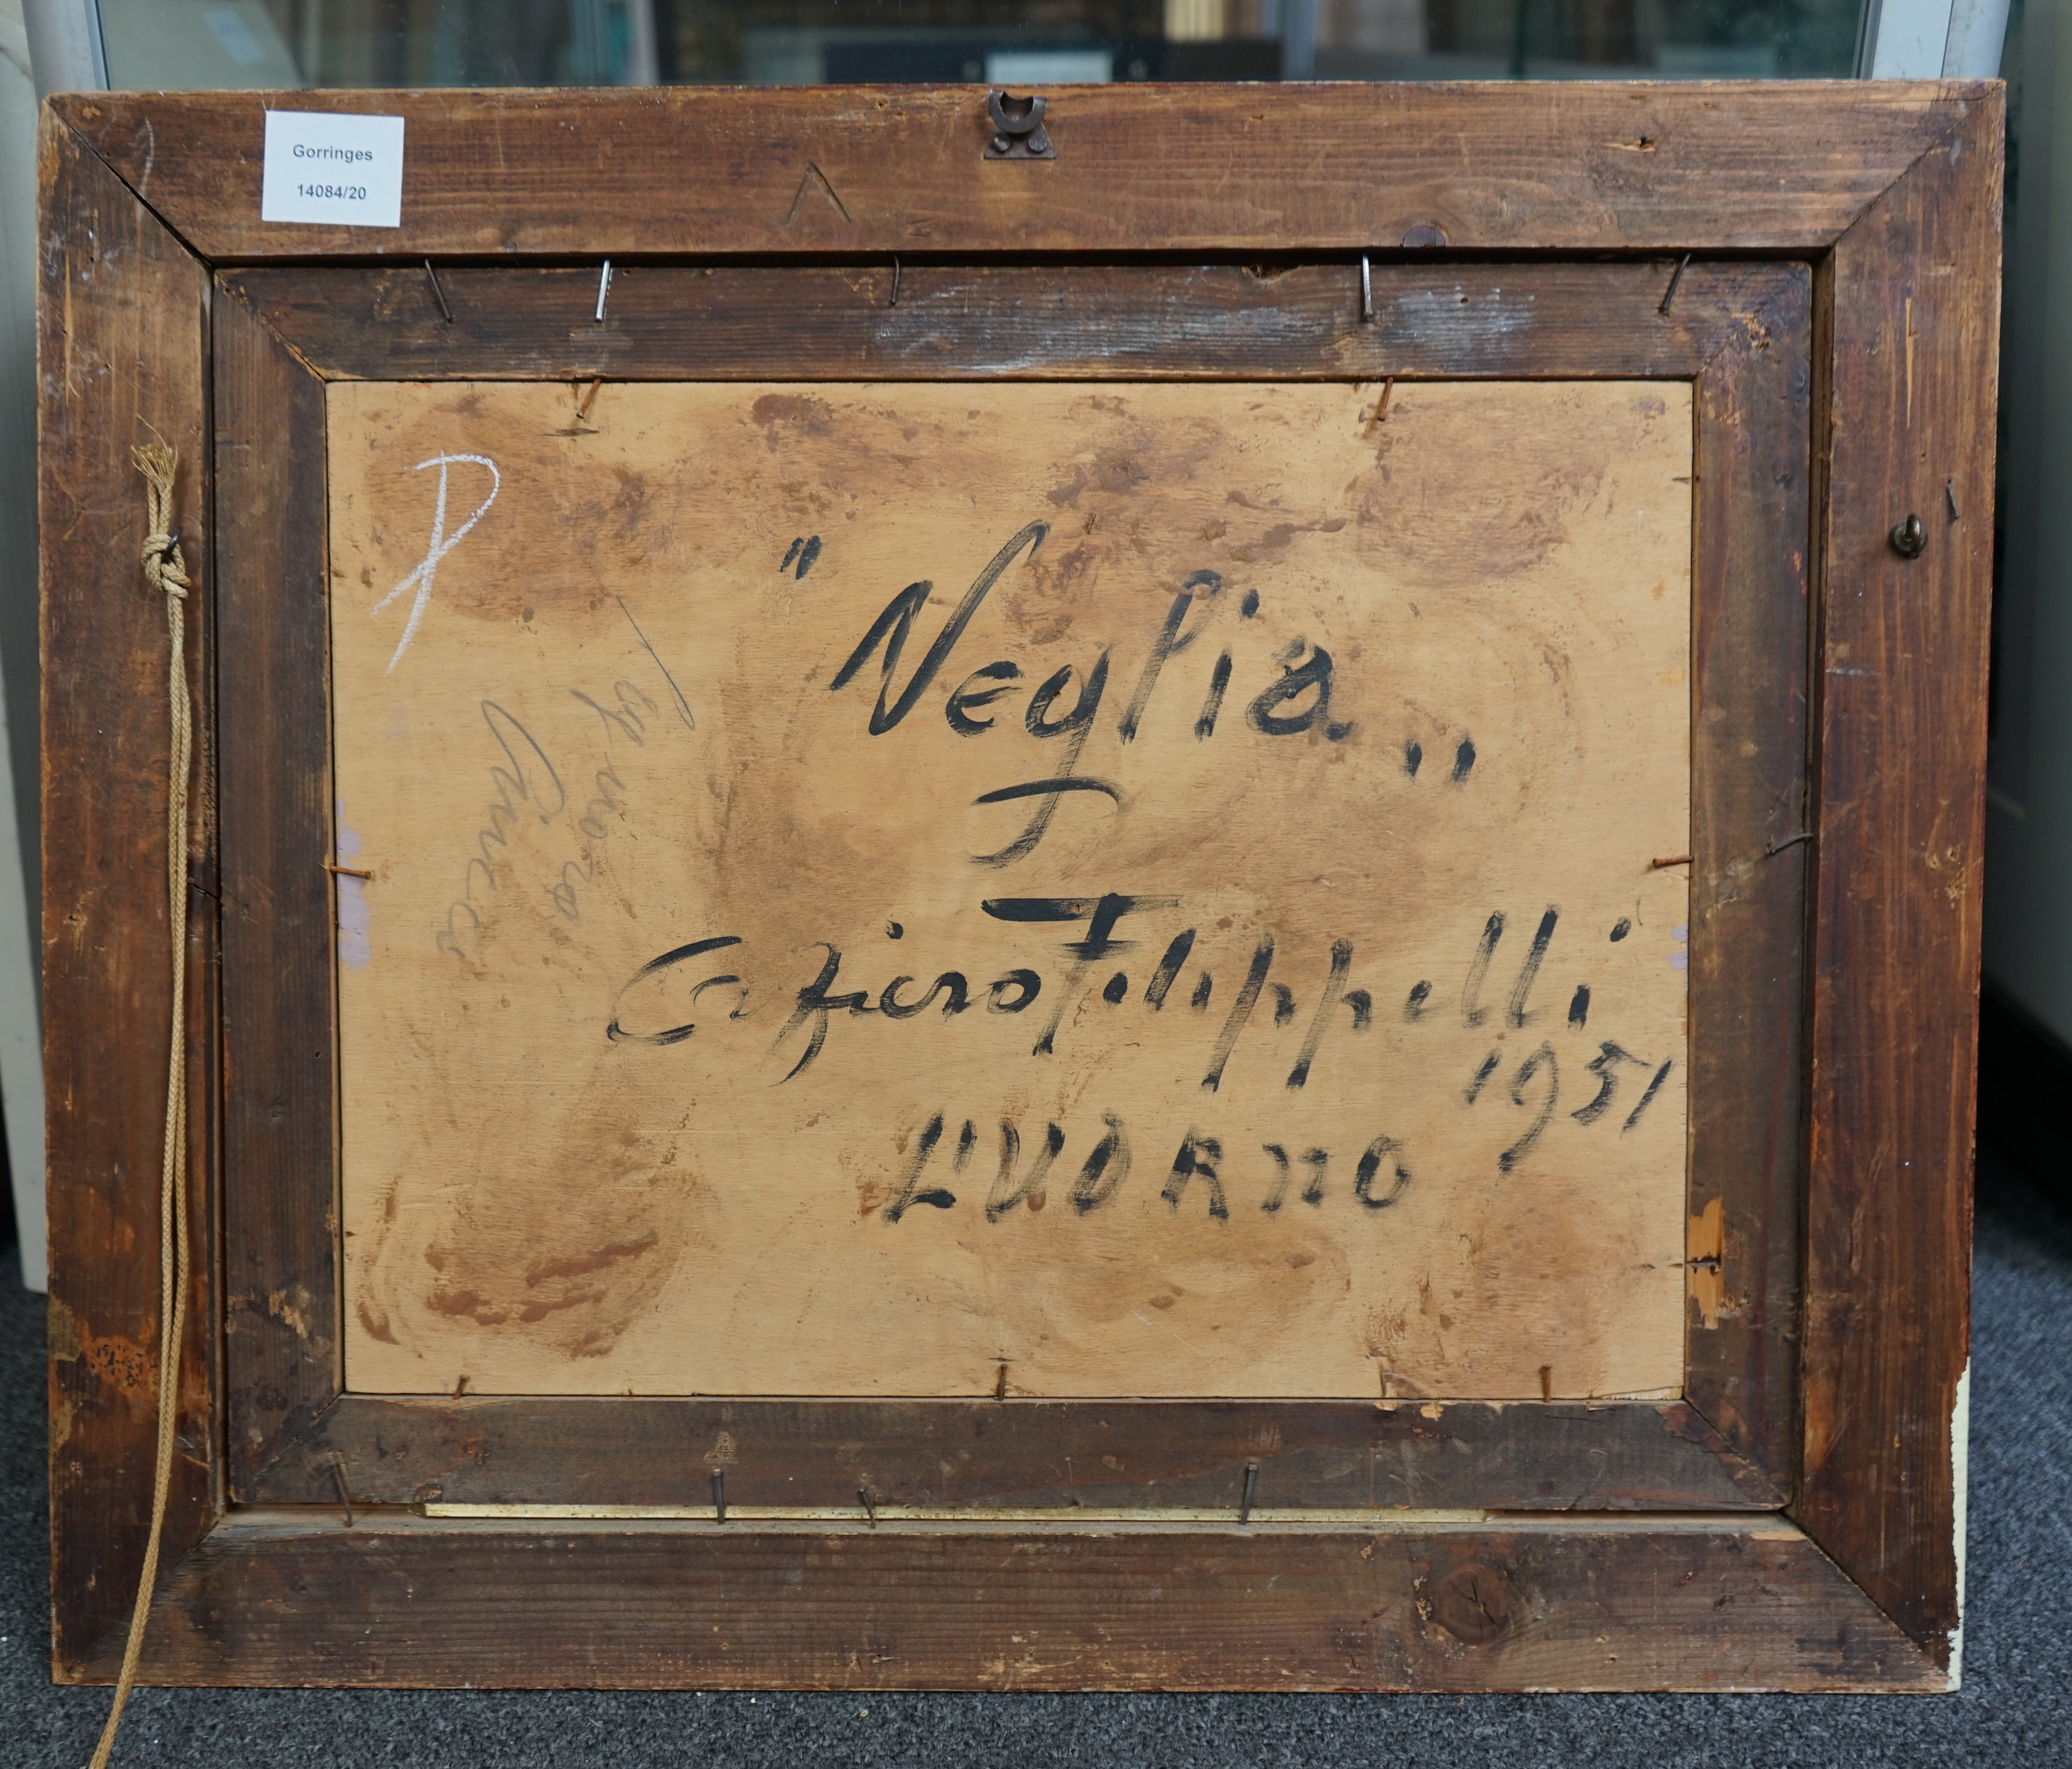 Gorringes
14084/20
P
"Neglia„
Cafiero Filippelli
1951
LIVORNO